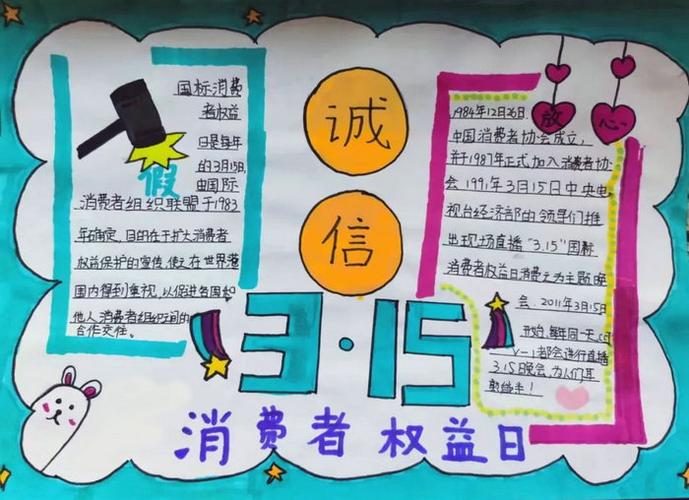 国标消费
者权益
日是每年
的3月15日,
由国际
消费者组织联盟于1983
年确定,目的在于扩大消费者
权益保护的宣传,使之在世界
国内得到重视,以促进各国和
他人消费者组织之间的
合作交往。
假
诚
信
放
心
1984年12月26日
中国消费者协会成立,
并于1987年正式加入消费者协
会1991年3月15日中央电
视台经济部的领导们推
出现场直播“3.15”国际
消费者权益日消费之为主题晚
会.2011年3月15日
开始,每年同一天,cct
V-1都会进行直播
3.15日晚会,为人们耳
3·15
消费者权益日